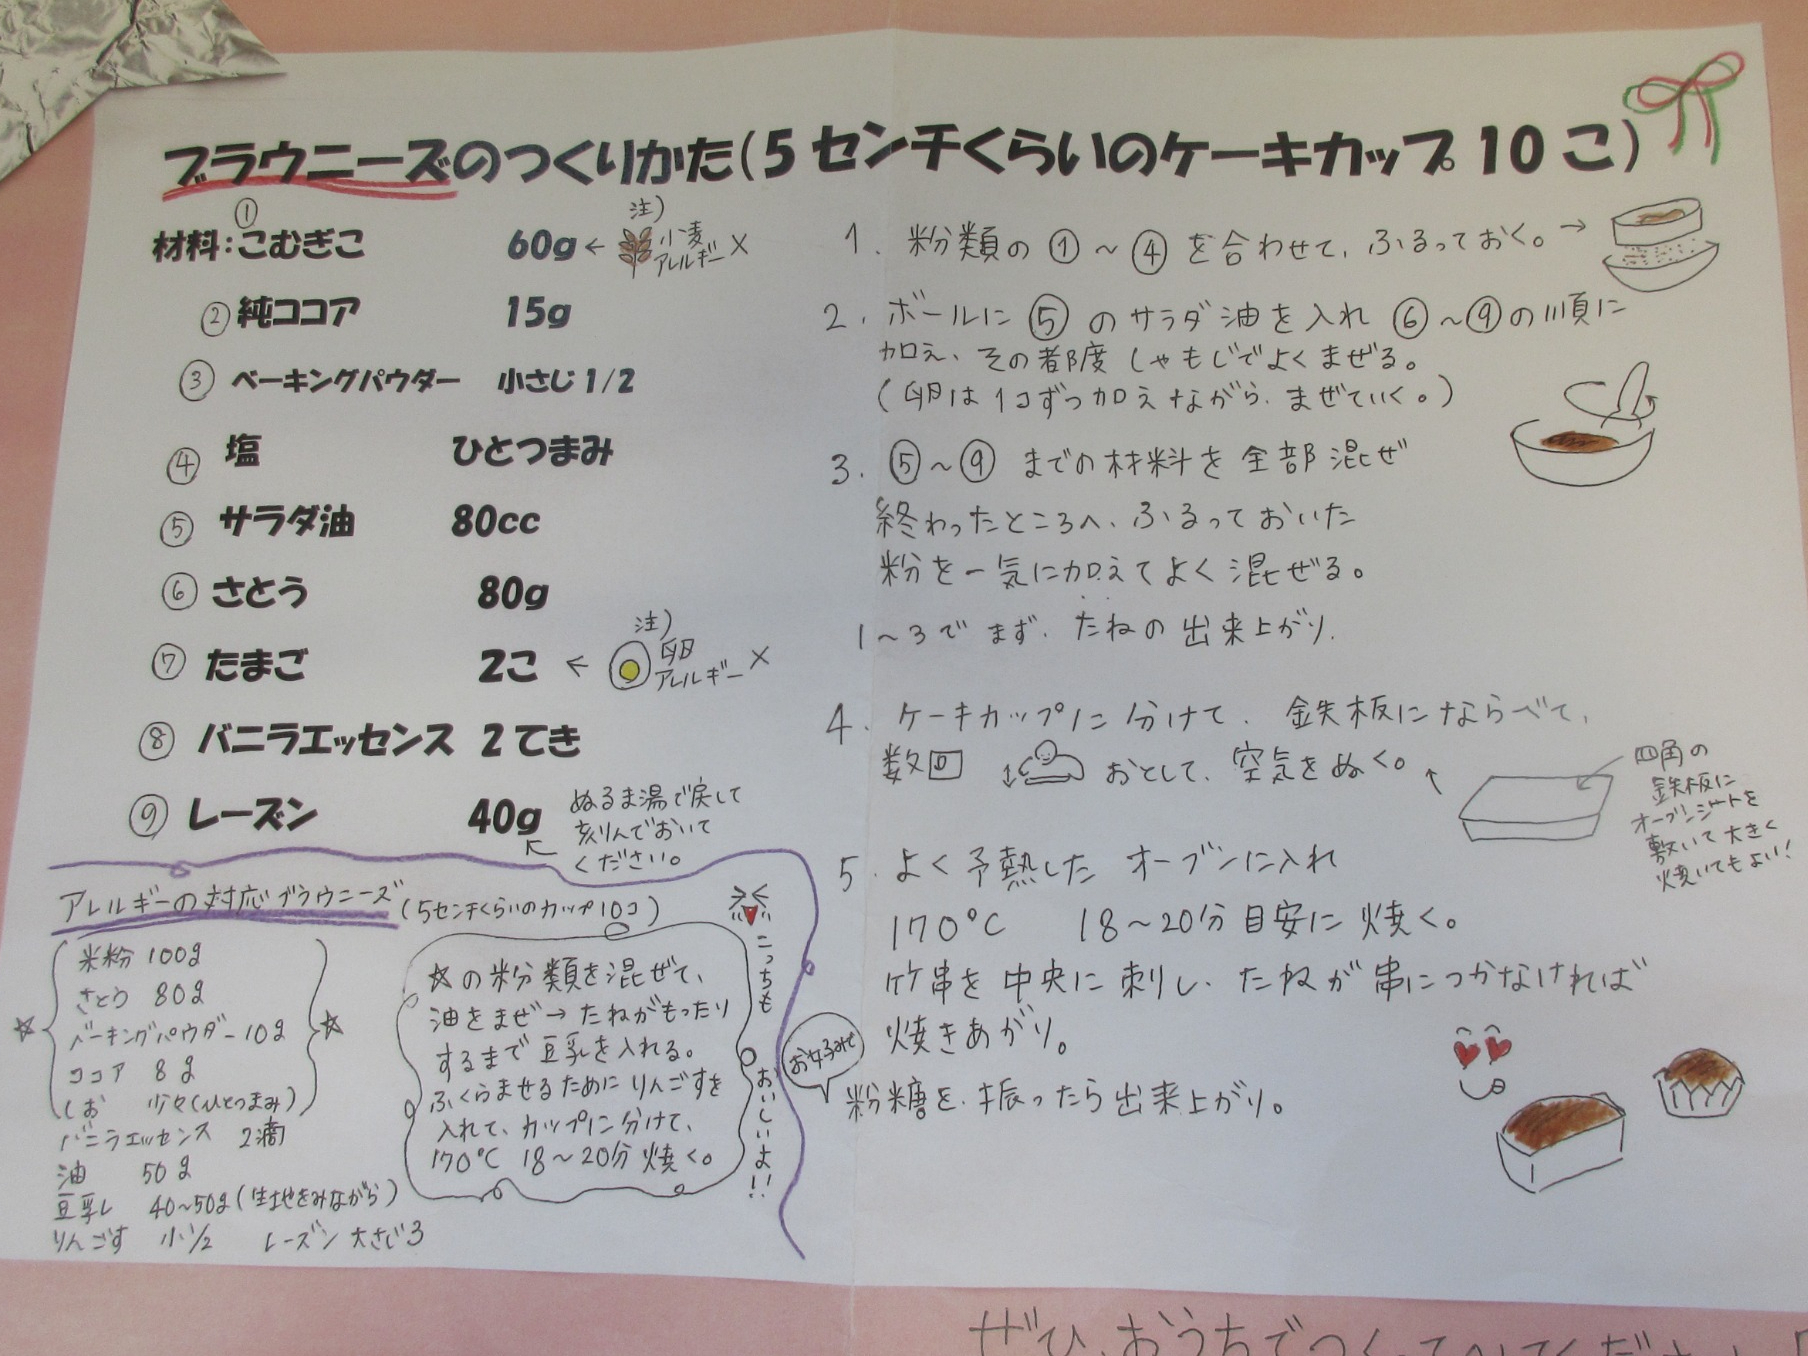 ブラウニーズのつくりかた(5センチくらいのケーキカップ10こ)
材料:①こむぎこ 60g ← 注) 小麦アレルギー ×
②純ココア 15g
③ベーキングパウダー 小さじ1/2
④塩 ひとつまみ
⑤サラダ油 80cc
⑥さとう 80g
⑦たまご 2こ ← 注) 卵アレルギー ×
⑧バニラエッセンス 2てき
⑨レーズン 40g
ぬるま湯で戻して
刻んでおいて
ください。
アレルギーの対応ブラウニーズ(5センチくらいのカップ10コ)
☆ 米粉 100g ☆
さとう 80g
ベーキングパウダー 10g
ココア 8g
しお 少々(ひとつまみ)
バニラエッセンス 2滴
油 50g
豆乳 40~50g(生地をみながら)
りんごす 小1/2 レーズン 大さじ3
☆の粉類を混ぜて、
油をまぜ→たねがもったり
するまで豆乳を入れる。
ふくらませるためにりんごすを
入れて、カップに分けて、
170℃ 18~20分 焼く。
こっちも おいしいよ!!
1. 粉類の①~④を合わせて、ふるっておく。→
2. ボールに⑤のサラダ油を入れ⑥~⑨の順に
加え、その都度しゃもじでよくまぜる。
(卵は1コずつ加えながら、まぜていく。)
3. ⑤~⑨までの材料を全部混ぜ
終わったところへ、ふるっておいた
粉を一気に加えてよく混ぜる。
1~3でまず、たねの出来上がり。
4. ケーキカップに分けて、鉄板にならべて、
数回 おとして、空気をぬく。
四角の
鉄板に
オーブンシートを
敷いて大きく
焼いてもよい!
5. よく予熱したオーブンに入れ
170℃ 18~20分目安に焼く。
竹串を中央に刺し、たねが串につかなければ
焼きあがり。
お好みで
粉糖を、振ったら出来上がり。
ぜひ、おうちでつくってみてください